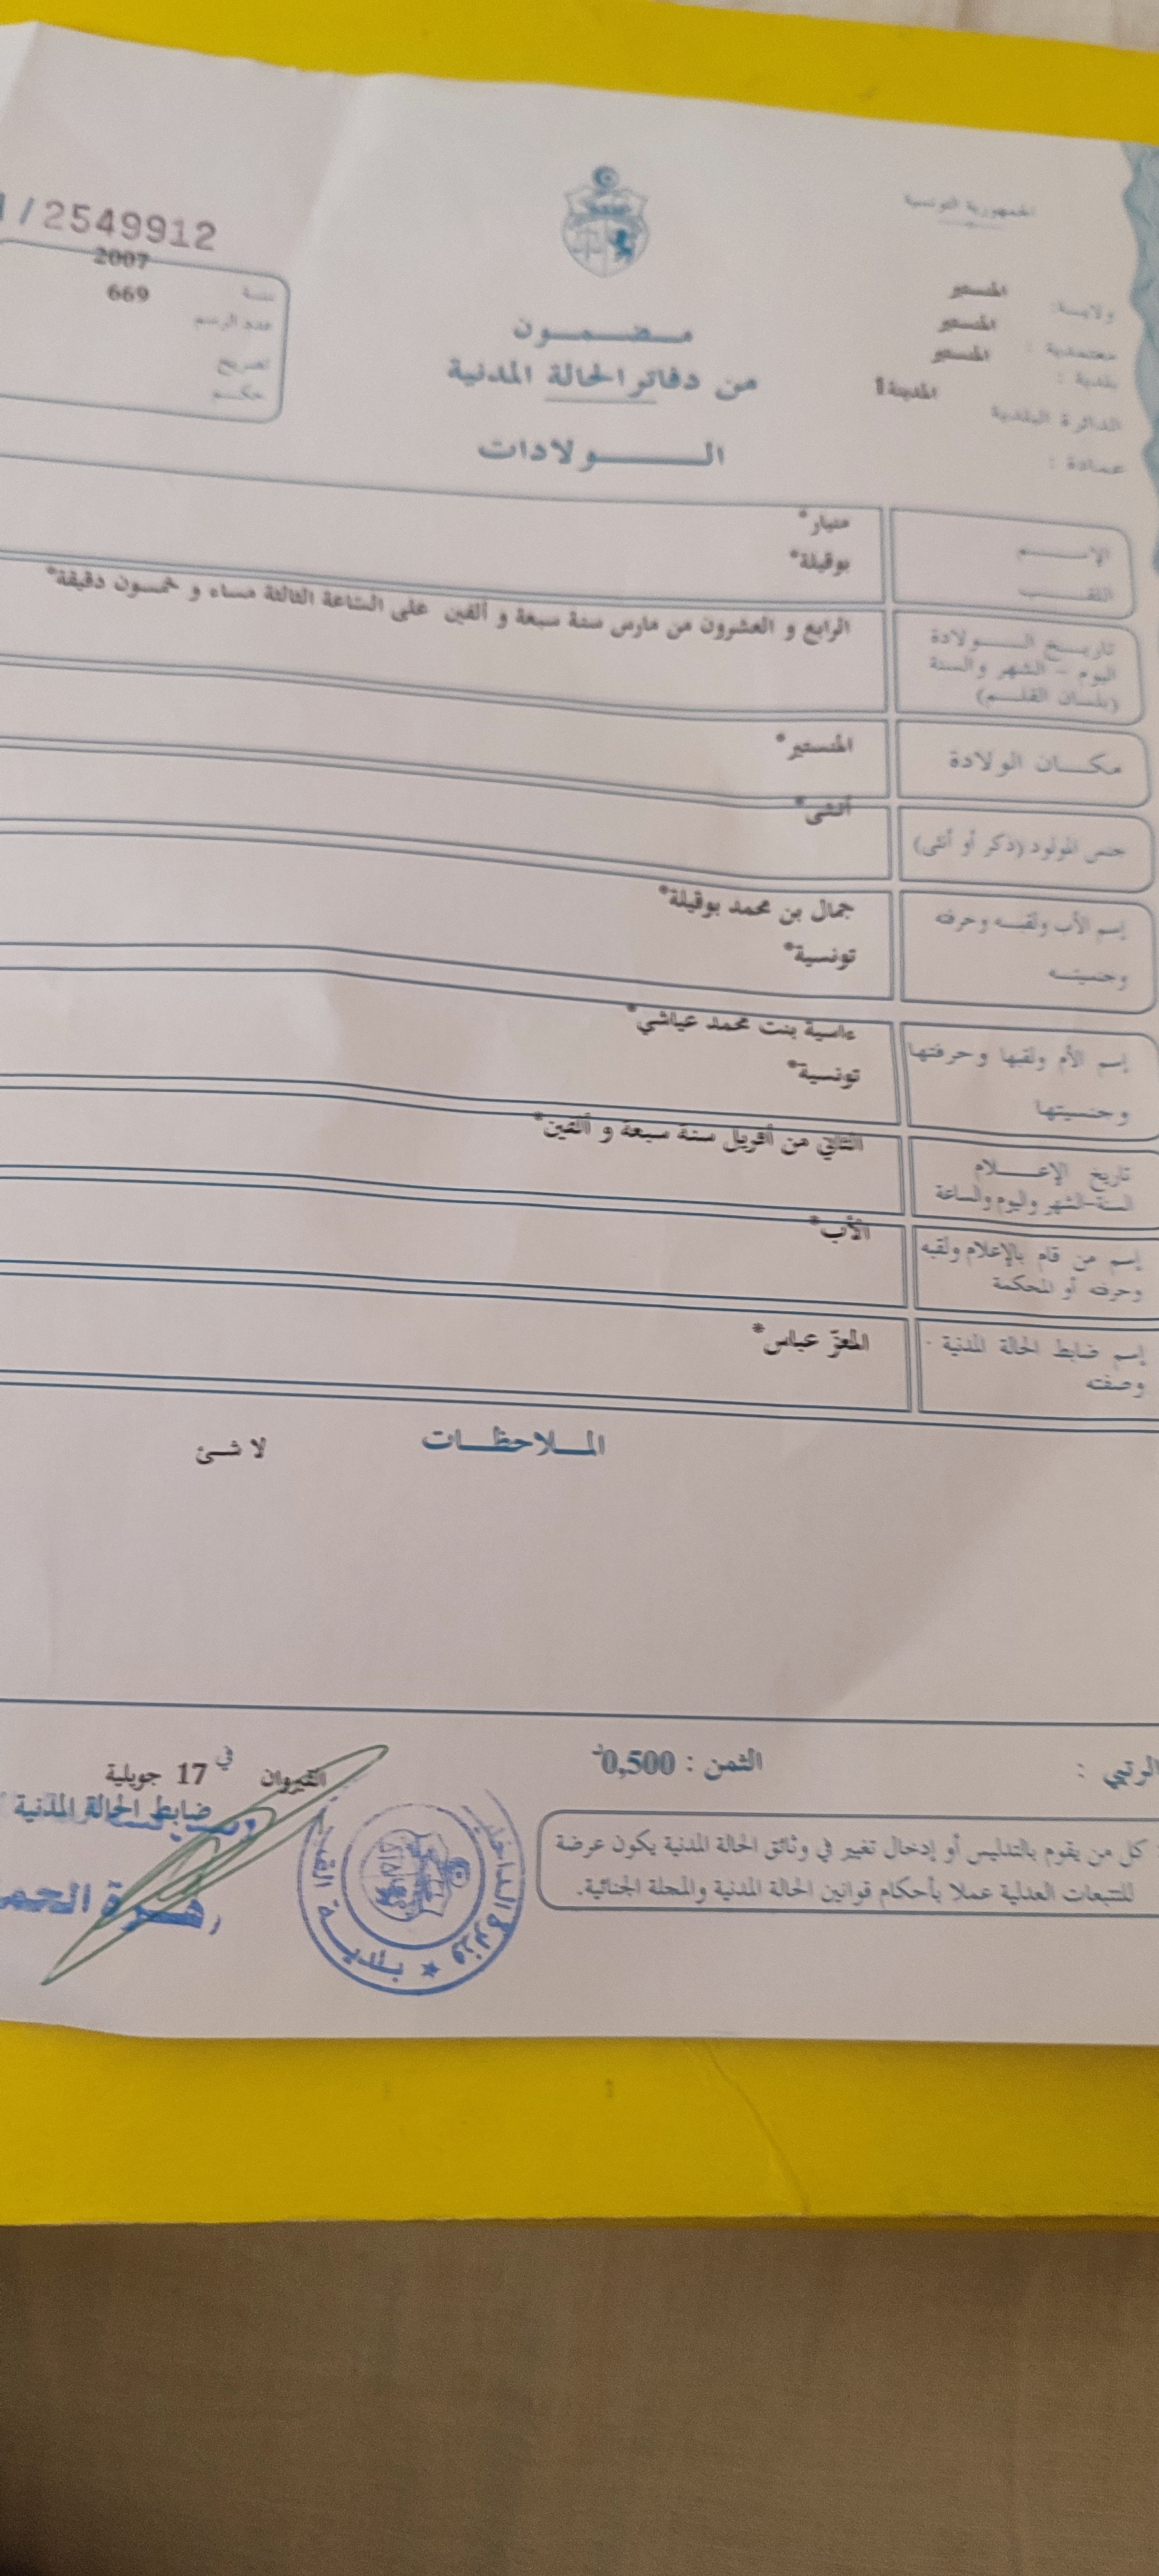 الجمهورية التونسية
/2549912
2007
سنة
669
عدد الرسم
تصريح
حكم
ولاية: المنستير
معتمدية : المنستير
بلدية : المنستير
الدائرة البلدية المدينة1
عمادة :
مضمون
من دفاتر الحالة المدنية
الولادات
الإسم منيار*
اللقب بوقيلة*
تاريخ الولادة
اليوم - الشهر والسنة
(بلسان القلم)
الرابع و العشرون من مارس سنة سبعة و ألفين على الساعة الثالثة مساء و خمسون دقيقة*
مكان الولادة المنستير*
جنس المولود (ذكر أو أنثى) أنثى*
إسم الأب ولقبه وحرفته جمال بن محمد بوقيلة*
وجنسيته تونسية*
إسم الأم ولقبها وحرفتها ءاسية بنت محمد عياشي*
وجنسيتها تونسية*
تاريخ الإعلام
السنة-الشهر واليوم والساعة
الثاني من أفريل سنة سبعة و ألفين*
إسم من قام بالإعلام ولقبه
وحرفته أو المحكمة
الأب*
إسم ضابط الحالة المدنية
وصفته
المعزّ عباس*
الملاحظات لا شئ
الثمن : 0,500د
القيروان في 17 جويلية
ضابط الحالة المدنية
كل من يقوم بالتدليس أو إدخال تغيير في وثائق الحالة المدنية يكون عرضة
للتتبعات العدلية عملا بأحكام قوانين الحالة المدنية والمجلة الجنائية.
وزارة الداخلية
بلدية